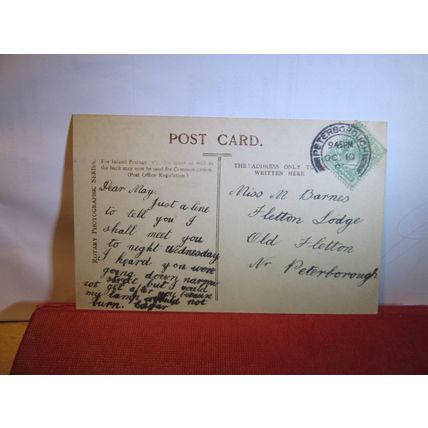 POST CARD.
ROTARY PHOTOGRAPHIC SERIES.
For Inland Postage only, this space as well as
the back may now be used for Communication.
(Post Office Regulation.)
THE ADDRESS ONLY TO
WRITTEN HERE
PETERBOROUGH
9.45 PM
OC 10
Dear May.
Just a line
to tell you I
shall meet you
to night Wednesday
I heard you were
going down narrow
street, but I could
not get after you because
my lamp would not
burn. Edgar
Miss M Barnes
Fletton Lodge
Old Fletton
Nr Peterborough